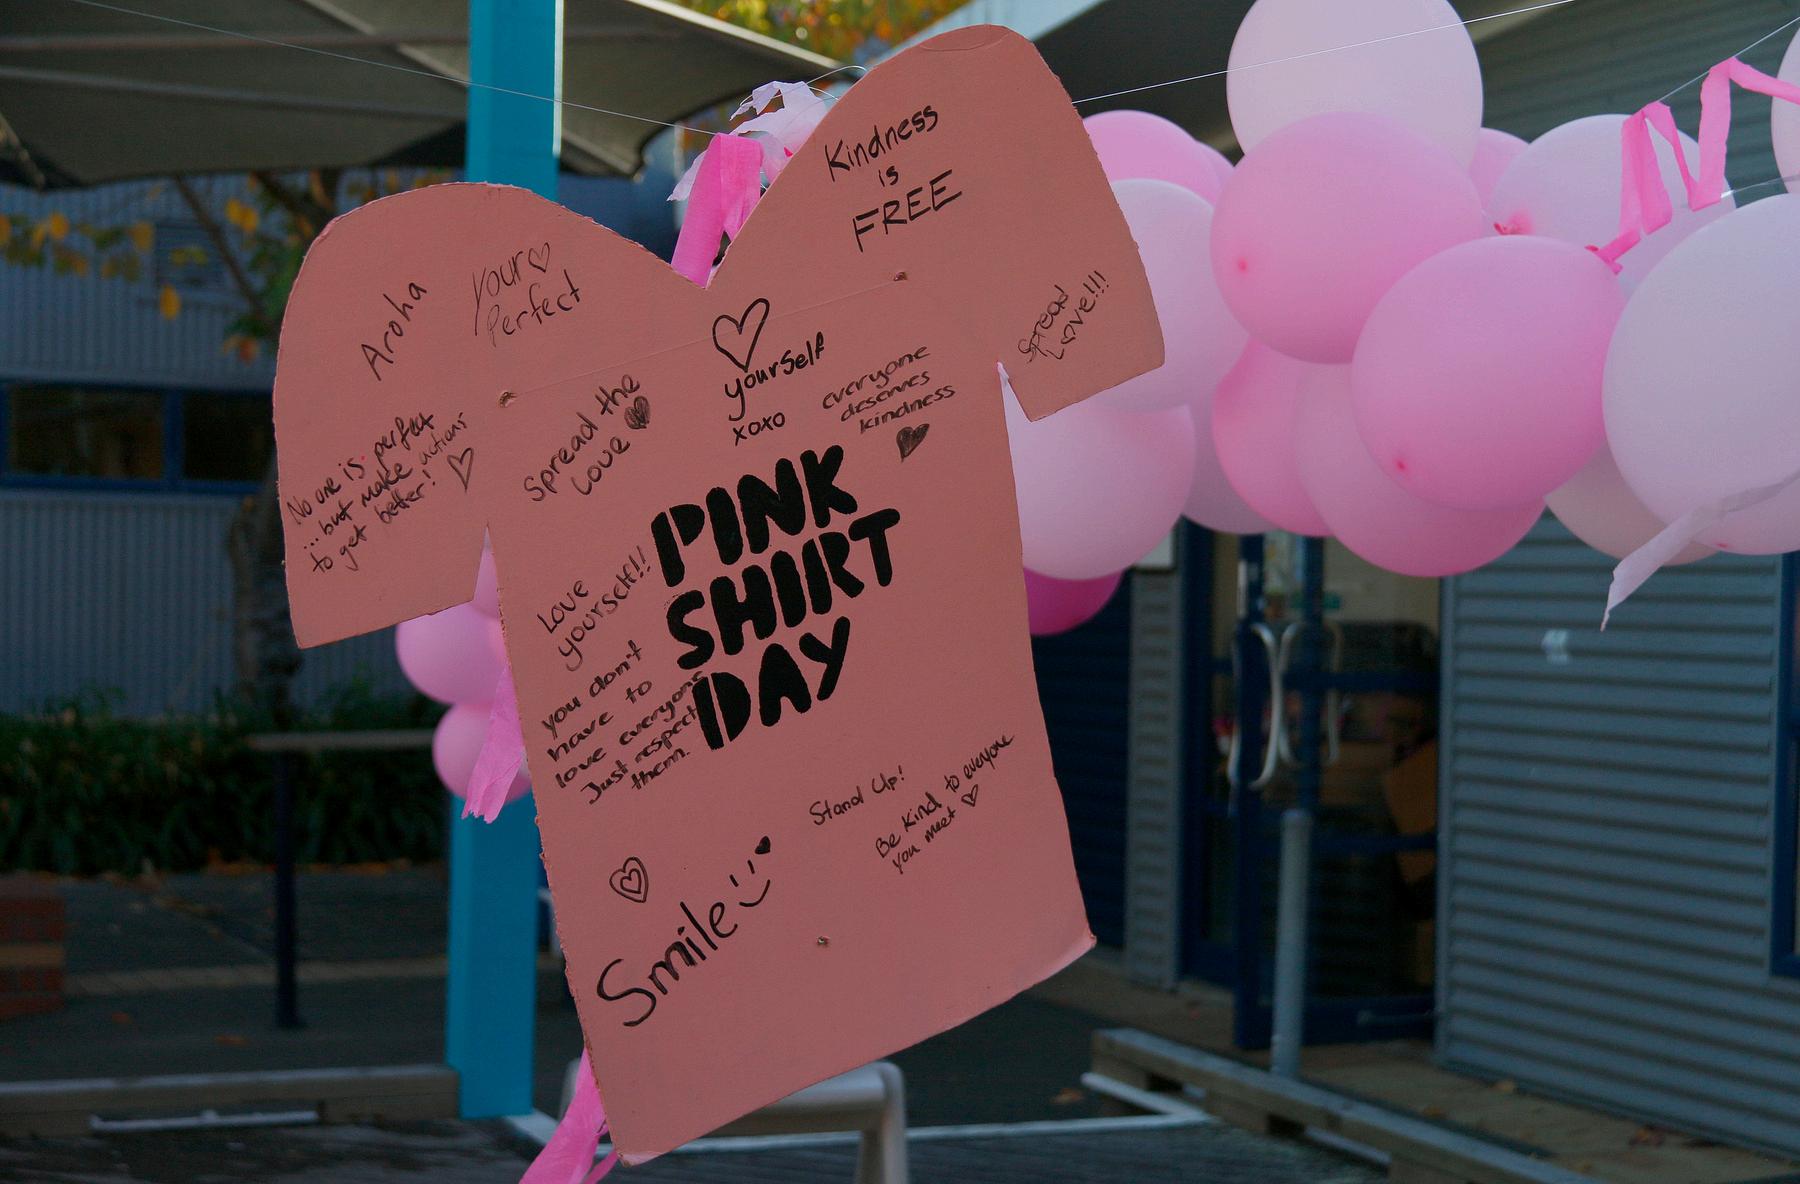 Kindness
is
FREE
Aroha
Your♡
Perfect
Spread
Love!!!
♡
yourself
xoxo
everyone
deserves
kindness
♥
Spread the
Love ♥
No one is perfect
...but make actions
to get better! ♡
PINK
SHIRT
DAY
Love
yourself!!
you don't
have to
love everyone
Just respect
them.
Stand Up!
Be Kind to everyone
you meet ♡
Smile